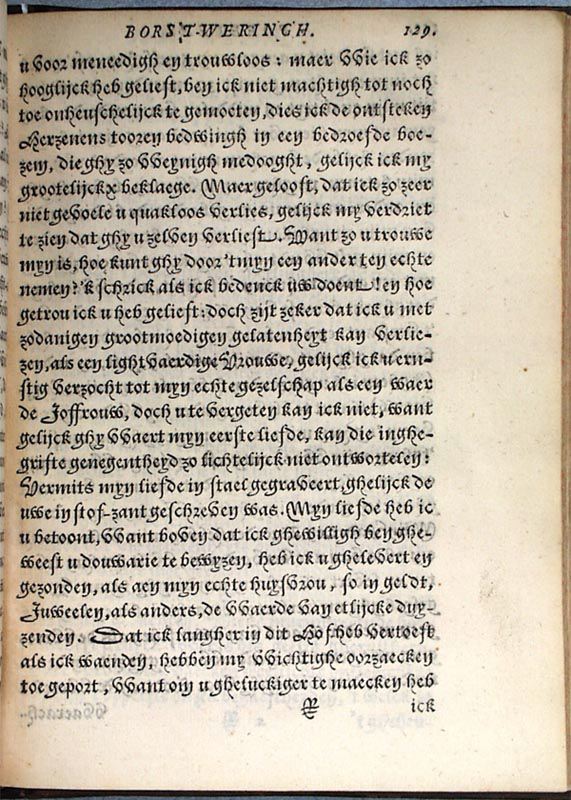 BORST-WERINCH. 129.
u voor meneedigh en trouwloos : maer Wie ick zo
hooglijck heb geliest, ben ick niet machtigh tot noch
toe onheuschelijck te gemoeten, dies ick de ontsteken
Herzenens tooren bedwingh in een bedroefde boe-
zem, die ghy zo Weynigh medooght, gelijck ick my
grootelijckx beklaege. Maer gelooft, dat ick zo zeer
niet gevoele u quakloos verlies, gelijck my verdriet
te zien dat ghy u zelven verliest. Want zo u trouwe
myn is, hoe kunt ghy door 'tmyn een ander ten echte
nemen? 'k schrick als ick bedenck uw doent! en hoe
getrou ick u heb gelieft : doch zijt zeker dat ick u met
zodanigen grootmoedigen gelatenheyt kan verlie-
zen, als een lightvaerdige Vrouwe, gelijck ick u ern-
stig verzocht tot myn echte gezelschap als een waer
de Joffrouw, doch u te vergeten kan ick niet, want
gelijck ghy Waert myn eerste liefde, kan die inghe-
grifte genegentheyd zo lichtelijck niet ontwortelen :
Vermits myn liefde in stael gegraveert, ghelijck de
uwe in stof-zant geschreven was. Myn liefde heb ic
u betoont, Want boven dat ick ghewilligh ben ghe-
weest u douwarie te bewyzen, heb ick u ghelevert en
gezonden, als aen myn echte huysvrou, so in geldt,
Juweelen, als anders, de Waerde van etlijcke duy-
zenden. Dat ick langher in dit Hof heb vertoeft
als ick waenden, hebben my Wichtighe oorzaecken
toe geport, Want om u gheluckiger te maecken heb
R ick